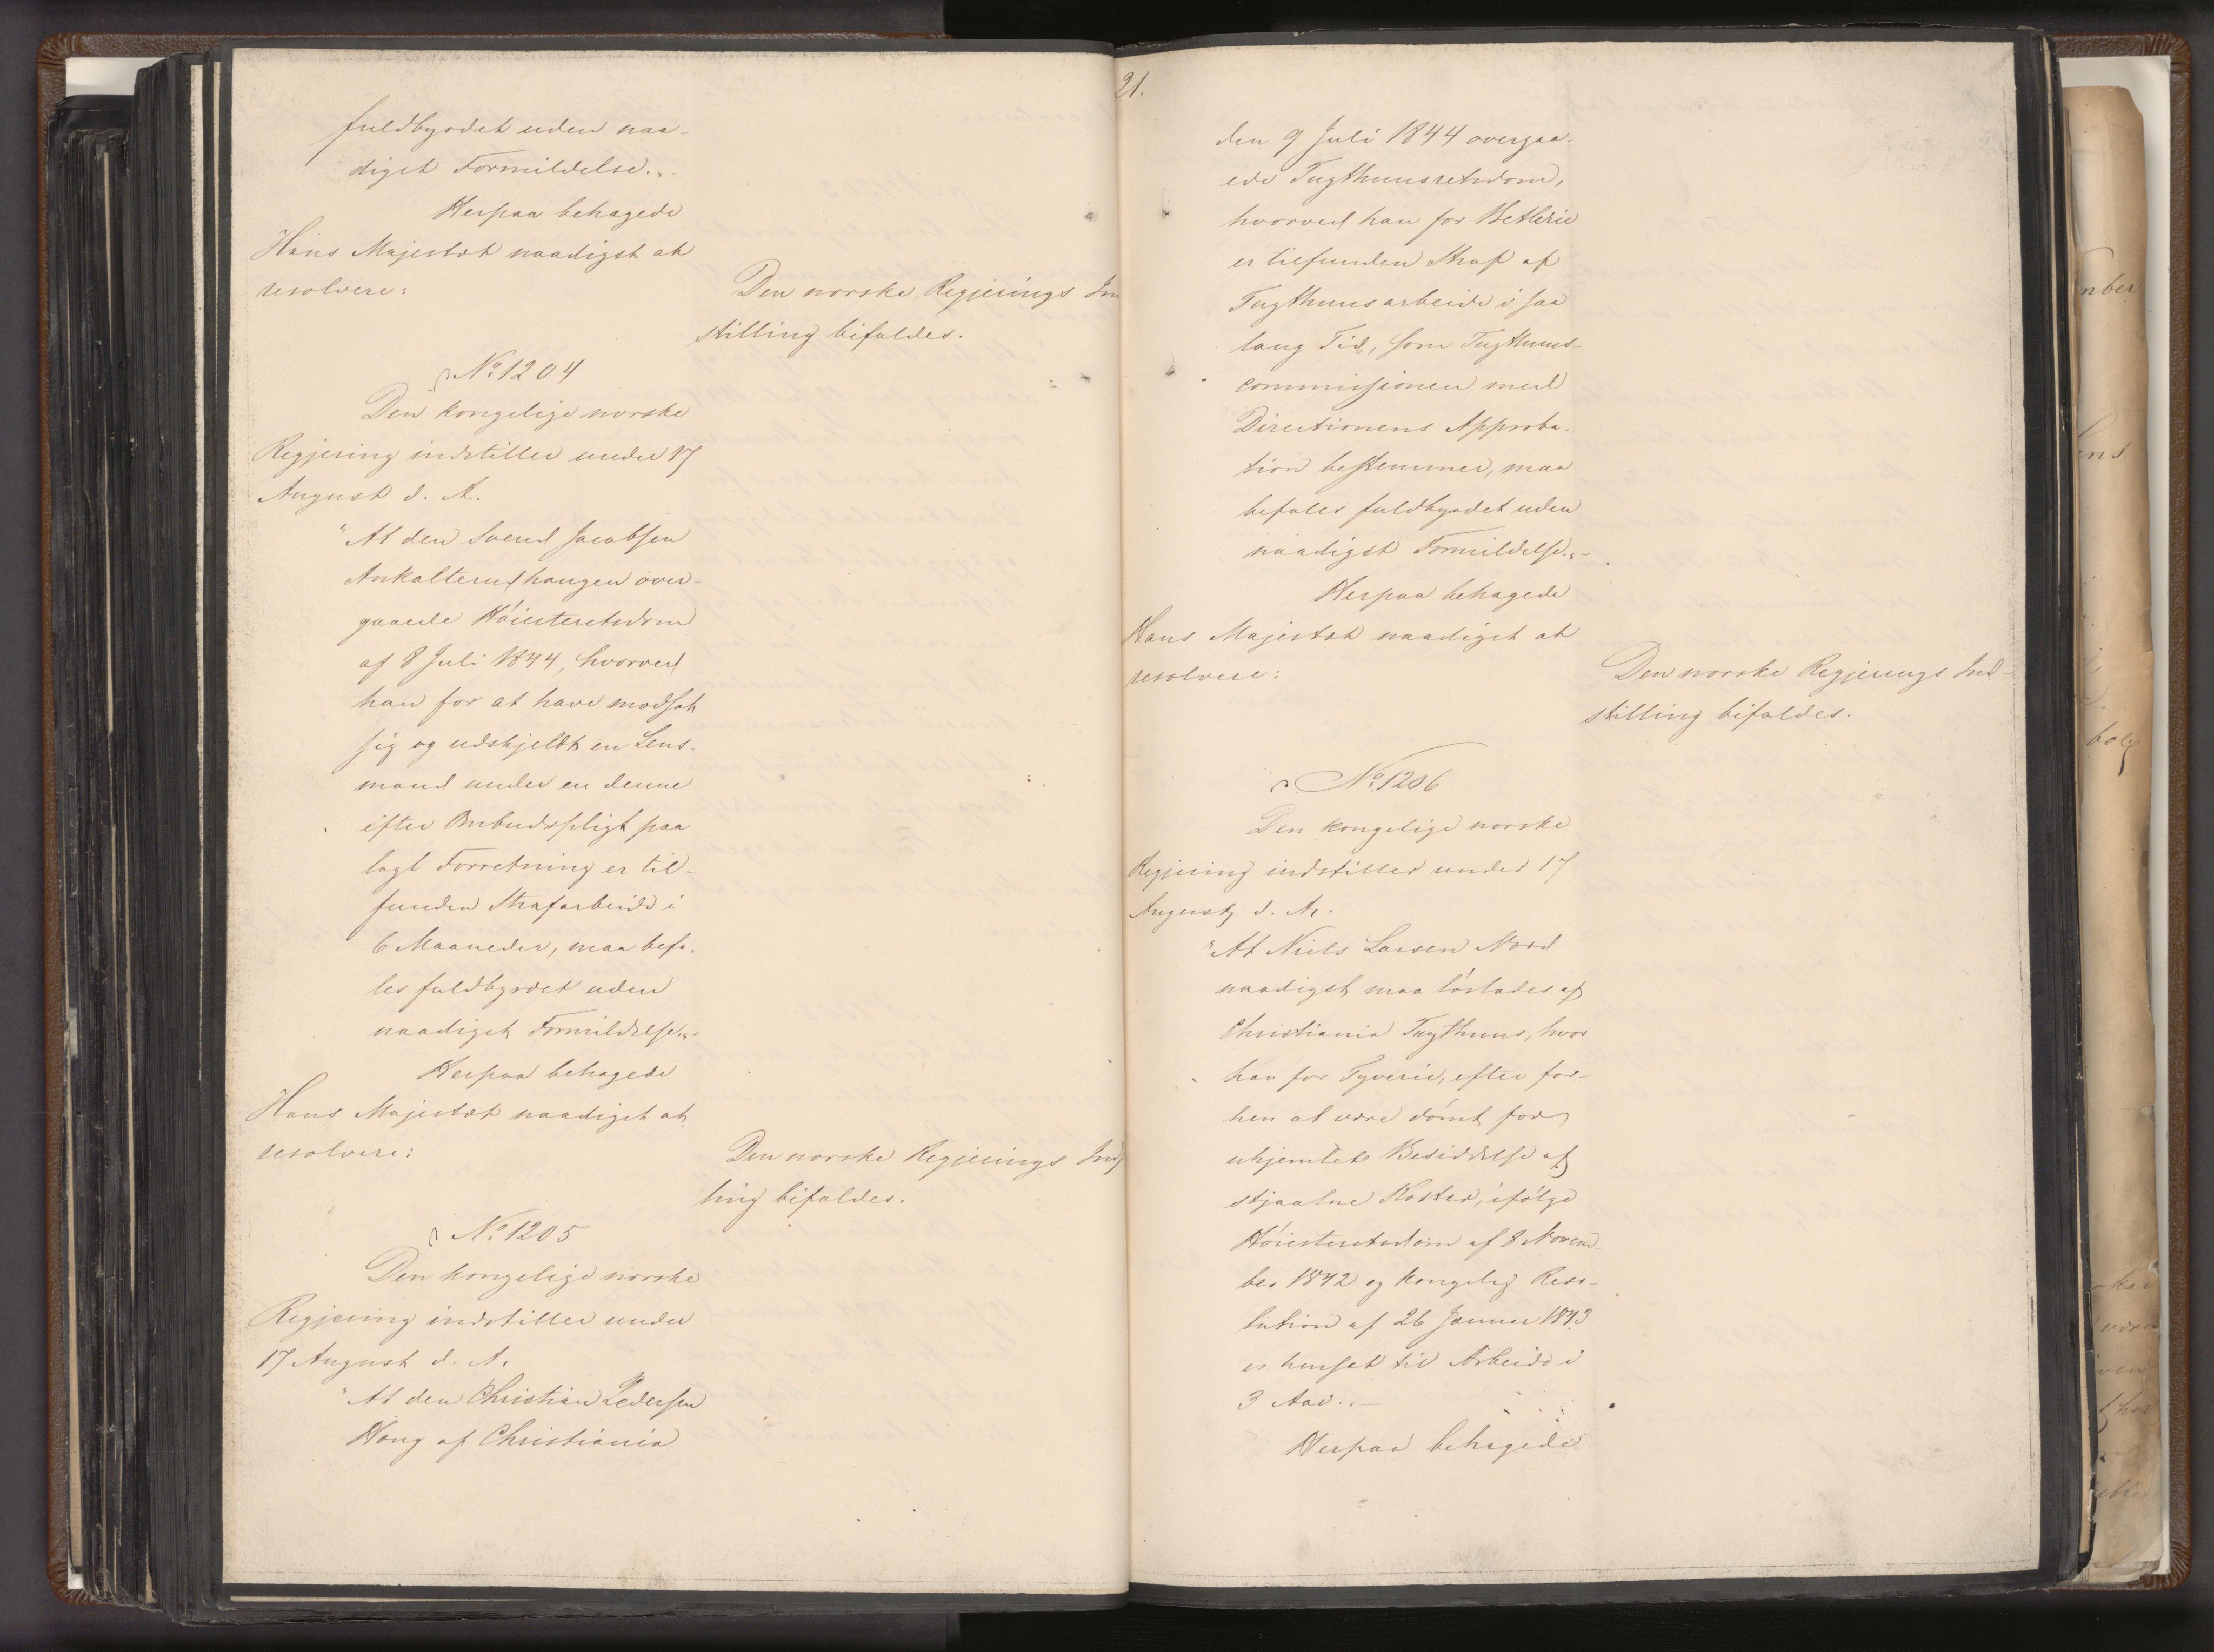 fuldbyrdet uden naa-
digst Formildelse.„
Herpaa behagede
Hans Majestæt naadigst at
resolvere:
Den norske Regjerings In
stilling bifaldes.
No 1204
Den kongelige norske
Regjering indstiller under 17
August d. A.
"At den Svend Jacobsen
overgaaede Høiesteretsdom
af 8 Juli 1844, hvorved
han for at have modsat
sig og udskjeldt en Lens-
mand under en denne
efter Ombudspligt paa
lagt Forretning er til-
funden Strafarbeide i
6 Maaneder, maa befa-
les fuldbyrdet uden
naadigst Formildelse.„
Herpaa behagede
Hans Majestæt naadigst at
resolvere:
Den norske Regjerings Ind
ling bifaldes.
No 1205
Den kongelige norske
Regjering indstiller under
17 August d. A.
"At den Christian Pedersen
Houg af Christiania
21.
den 9 Juli 1844 overgaa-
ede Tugthuusretsdom,
hvorved han for Betlerie
er tilfunden Straf af
Tugthuusarbeide i saa
lang Tid, som Tugthuus-
commissionen med
Directionens Approba-
tion bestemmer, maa
befales fuldbyrdet uden
naadigst Formildelse.„
Herpaa behagede
Hans Majestæt naadigst at
resolvere:
Den norske Regjerings Ind-
stilling bifaldes.
No 1206
Den kongelige norske
Regjering indstiller under 17
August d. Ar.
"At Niels Larsen Nord
naadigst maa løslades af
Christiania Tugthuus, hvor
han for Tyverie, efter for-
hen at være dømt for
uhjemlet Besiddelse af
stjaalne Koster, ifølge
Høiesteretsdom af 8 Novem-
ber 1842 og kongelig Reso-
lution af 26 Januar 1843
er hensat til Arbeide i
3 Aar.„
Herpaa behagede